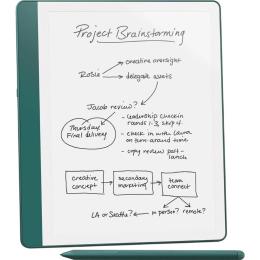 Project Brainstorming
creative oversight
Rosie
delegate assets
Jacob review?
- leadership check in
rounds 1-3, step 4
Thursday,
Final delivery
- check in with Laura
on turn-around time
- copy review post-
launch
creative
concept
secondary
marketing
team
connect
LA or Seattle?
in person?
remote?